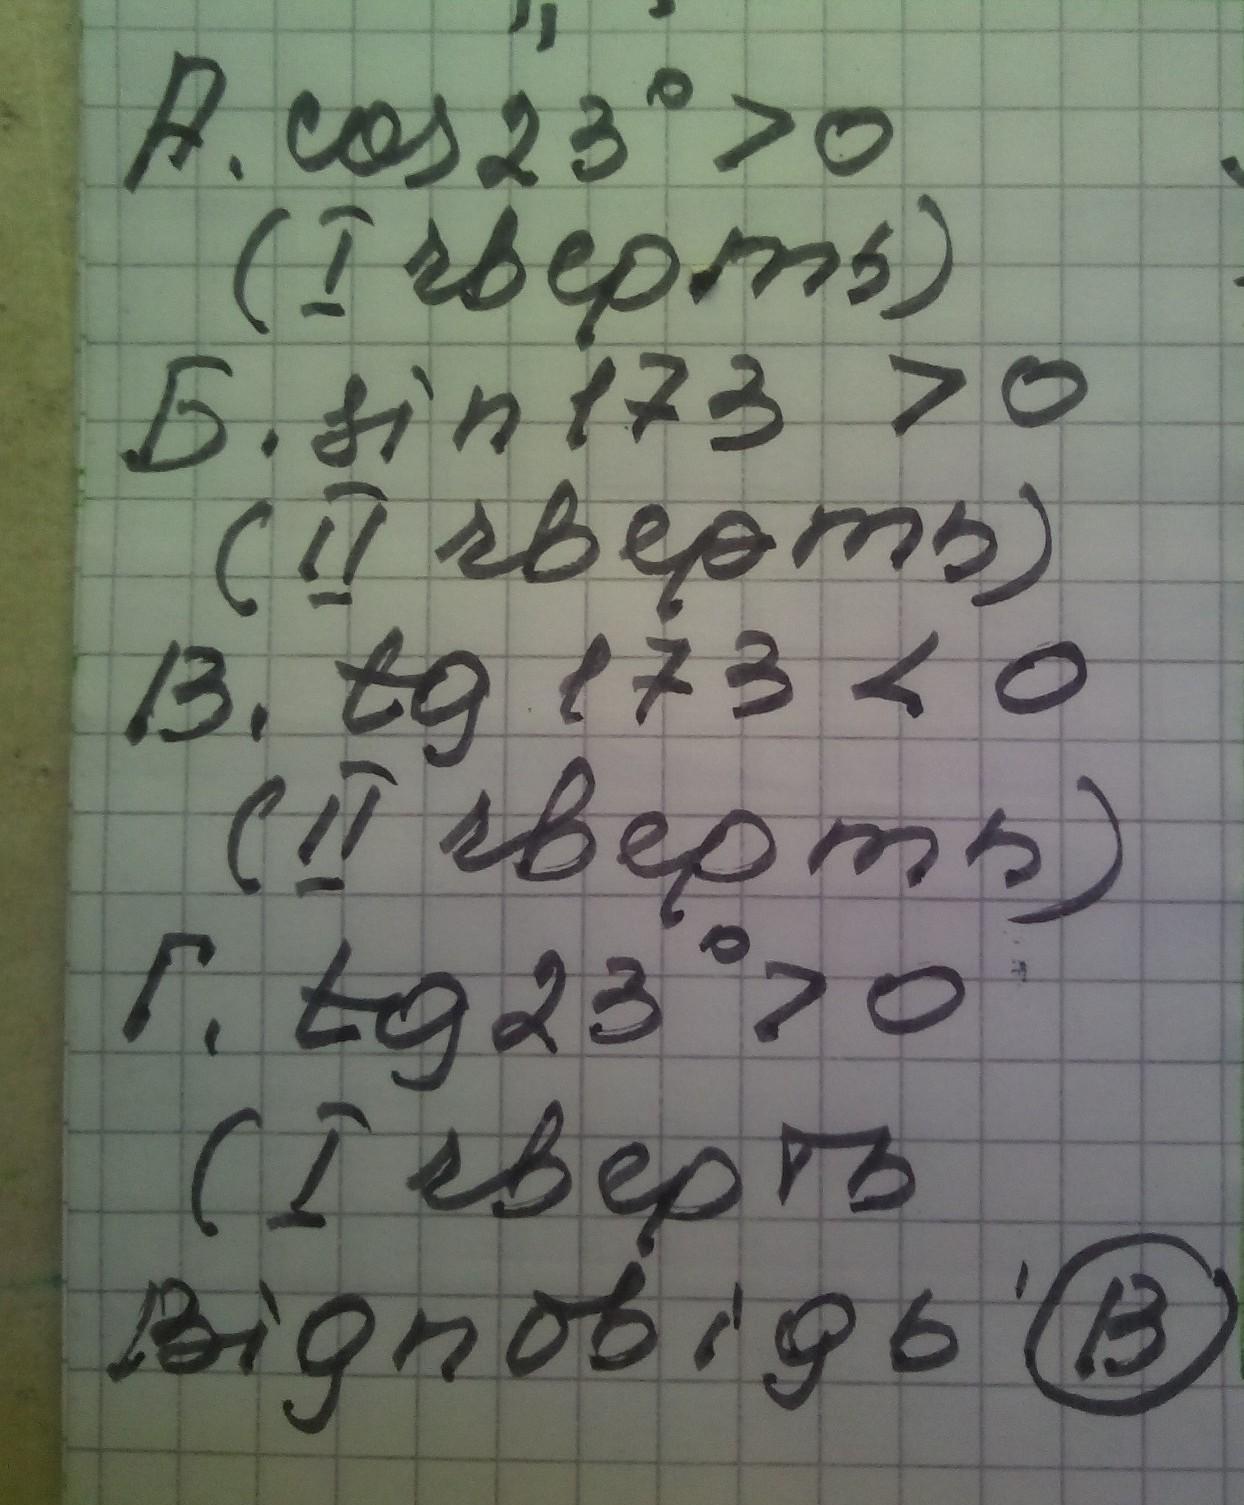 А. cos23° > 0
(I чверть)
Б. sin173 > 0
(II чверть)
В. tg 173 < 0
(II чверть)
Г. tg23° > 0
(I чверть
Відповідь В